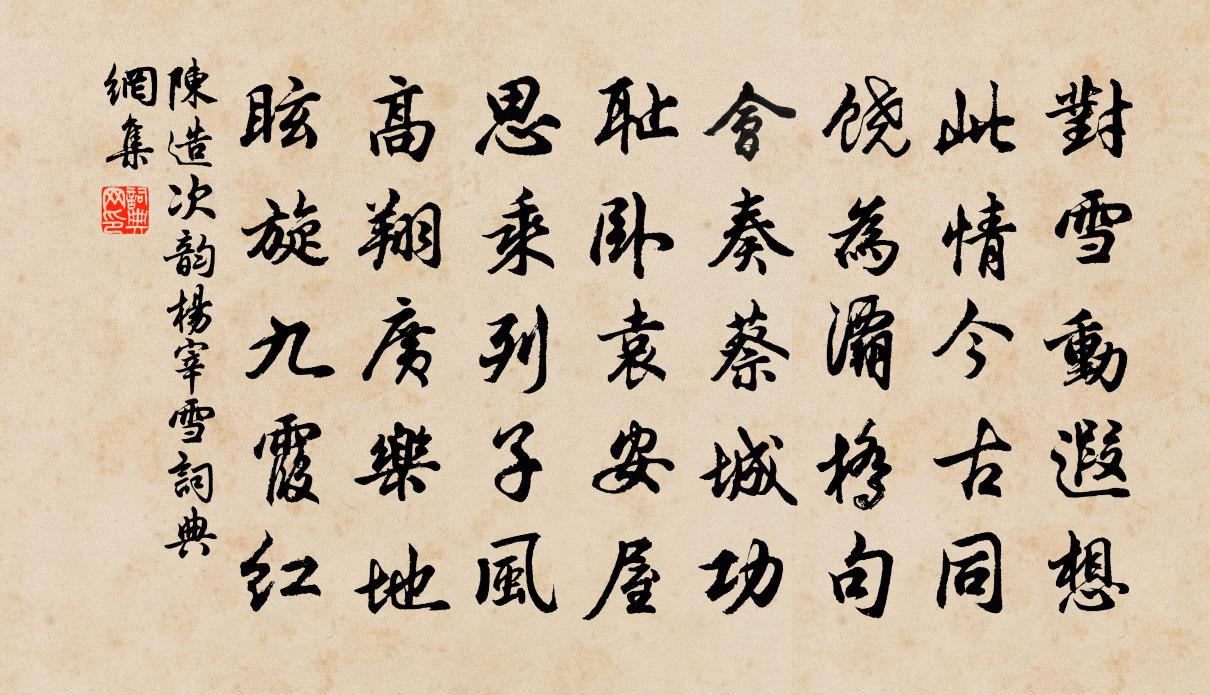 對雪動遐想
此情今古同
饒為灞橋句
會奏蔡城功
耻卧袁安屋
思乘列子風
高翔廣樂地
眩旋九霞紅
陳造次韵楊宰雪詞典
網集
詞典網印